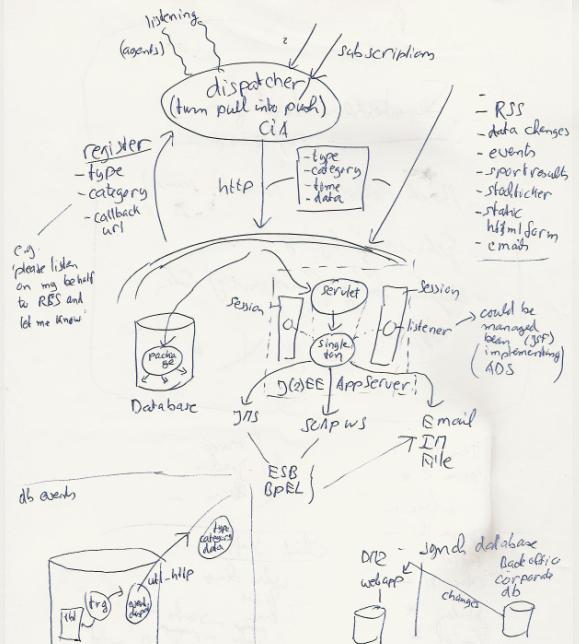 listening
(agents)
?
subscriptions
dispatcher
(turn pull into push)
register
- type
- category
- callback
url
http
- type
- category
- time
- data
-
- RSS
- data changes
- events
- sport results
- static
html form
- emails
e.g.
'please listen
on my behalf
to RSS and
let me know'
session
servlet
session
listener
single
ton
could be
managed
bean (JSF)
(implementing
ADS)
packa
ge
Database
J(2)EE AppServer
JMS
SOAP WS
Email
IM
File
ESB
BPEL
db events
type
category
data
utl-http
tbl
trg
DMZ
webapp
synch database
Back office
corporate
db
changes